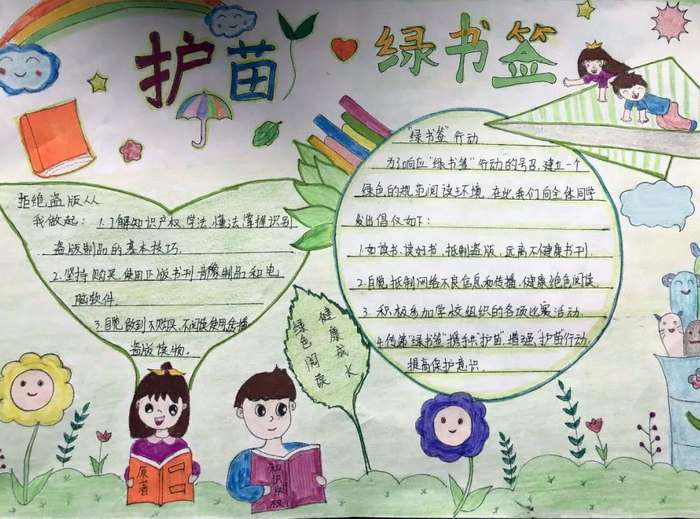 护苗 绿书签
拒绝盗版从
我做起：1.了解知识产权,学法、懂法,掌握识别
盗版制品的基本技巧.
2.坚持购买、使用正版书刊音像制品和电
脑软件.
3.自觉做到不购买、不阅读、使用传播
盗版读物.
"绿书签"行动
为了响应"绿书签"行动的号召,建立一个
绿色的规范阅读环境,在此我们向全体同学
发出倡仪如下:
1.如读书、读好书,抵制盗版,远离不健康书刊.
2.自觉抵制网络不良信息和传播,健康绝色阅读.
3.积极参加学校组织的各项比赛活动.
"绿书签"携手共"护苗"增强"护苗"行动,
提高保护意识.
健康成长
绿色阅读
原著
知识产权